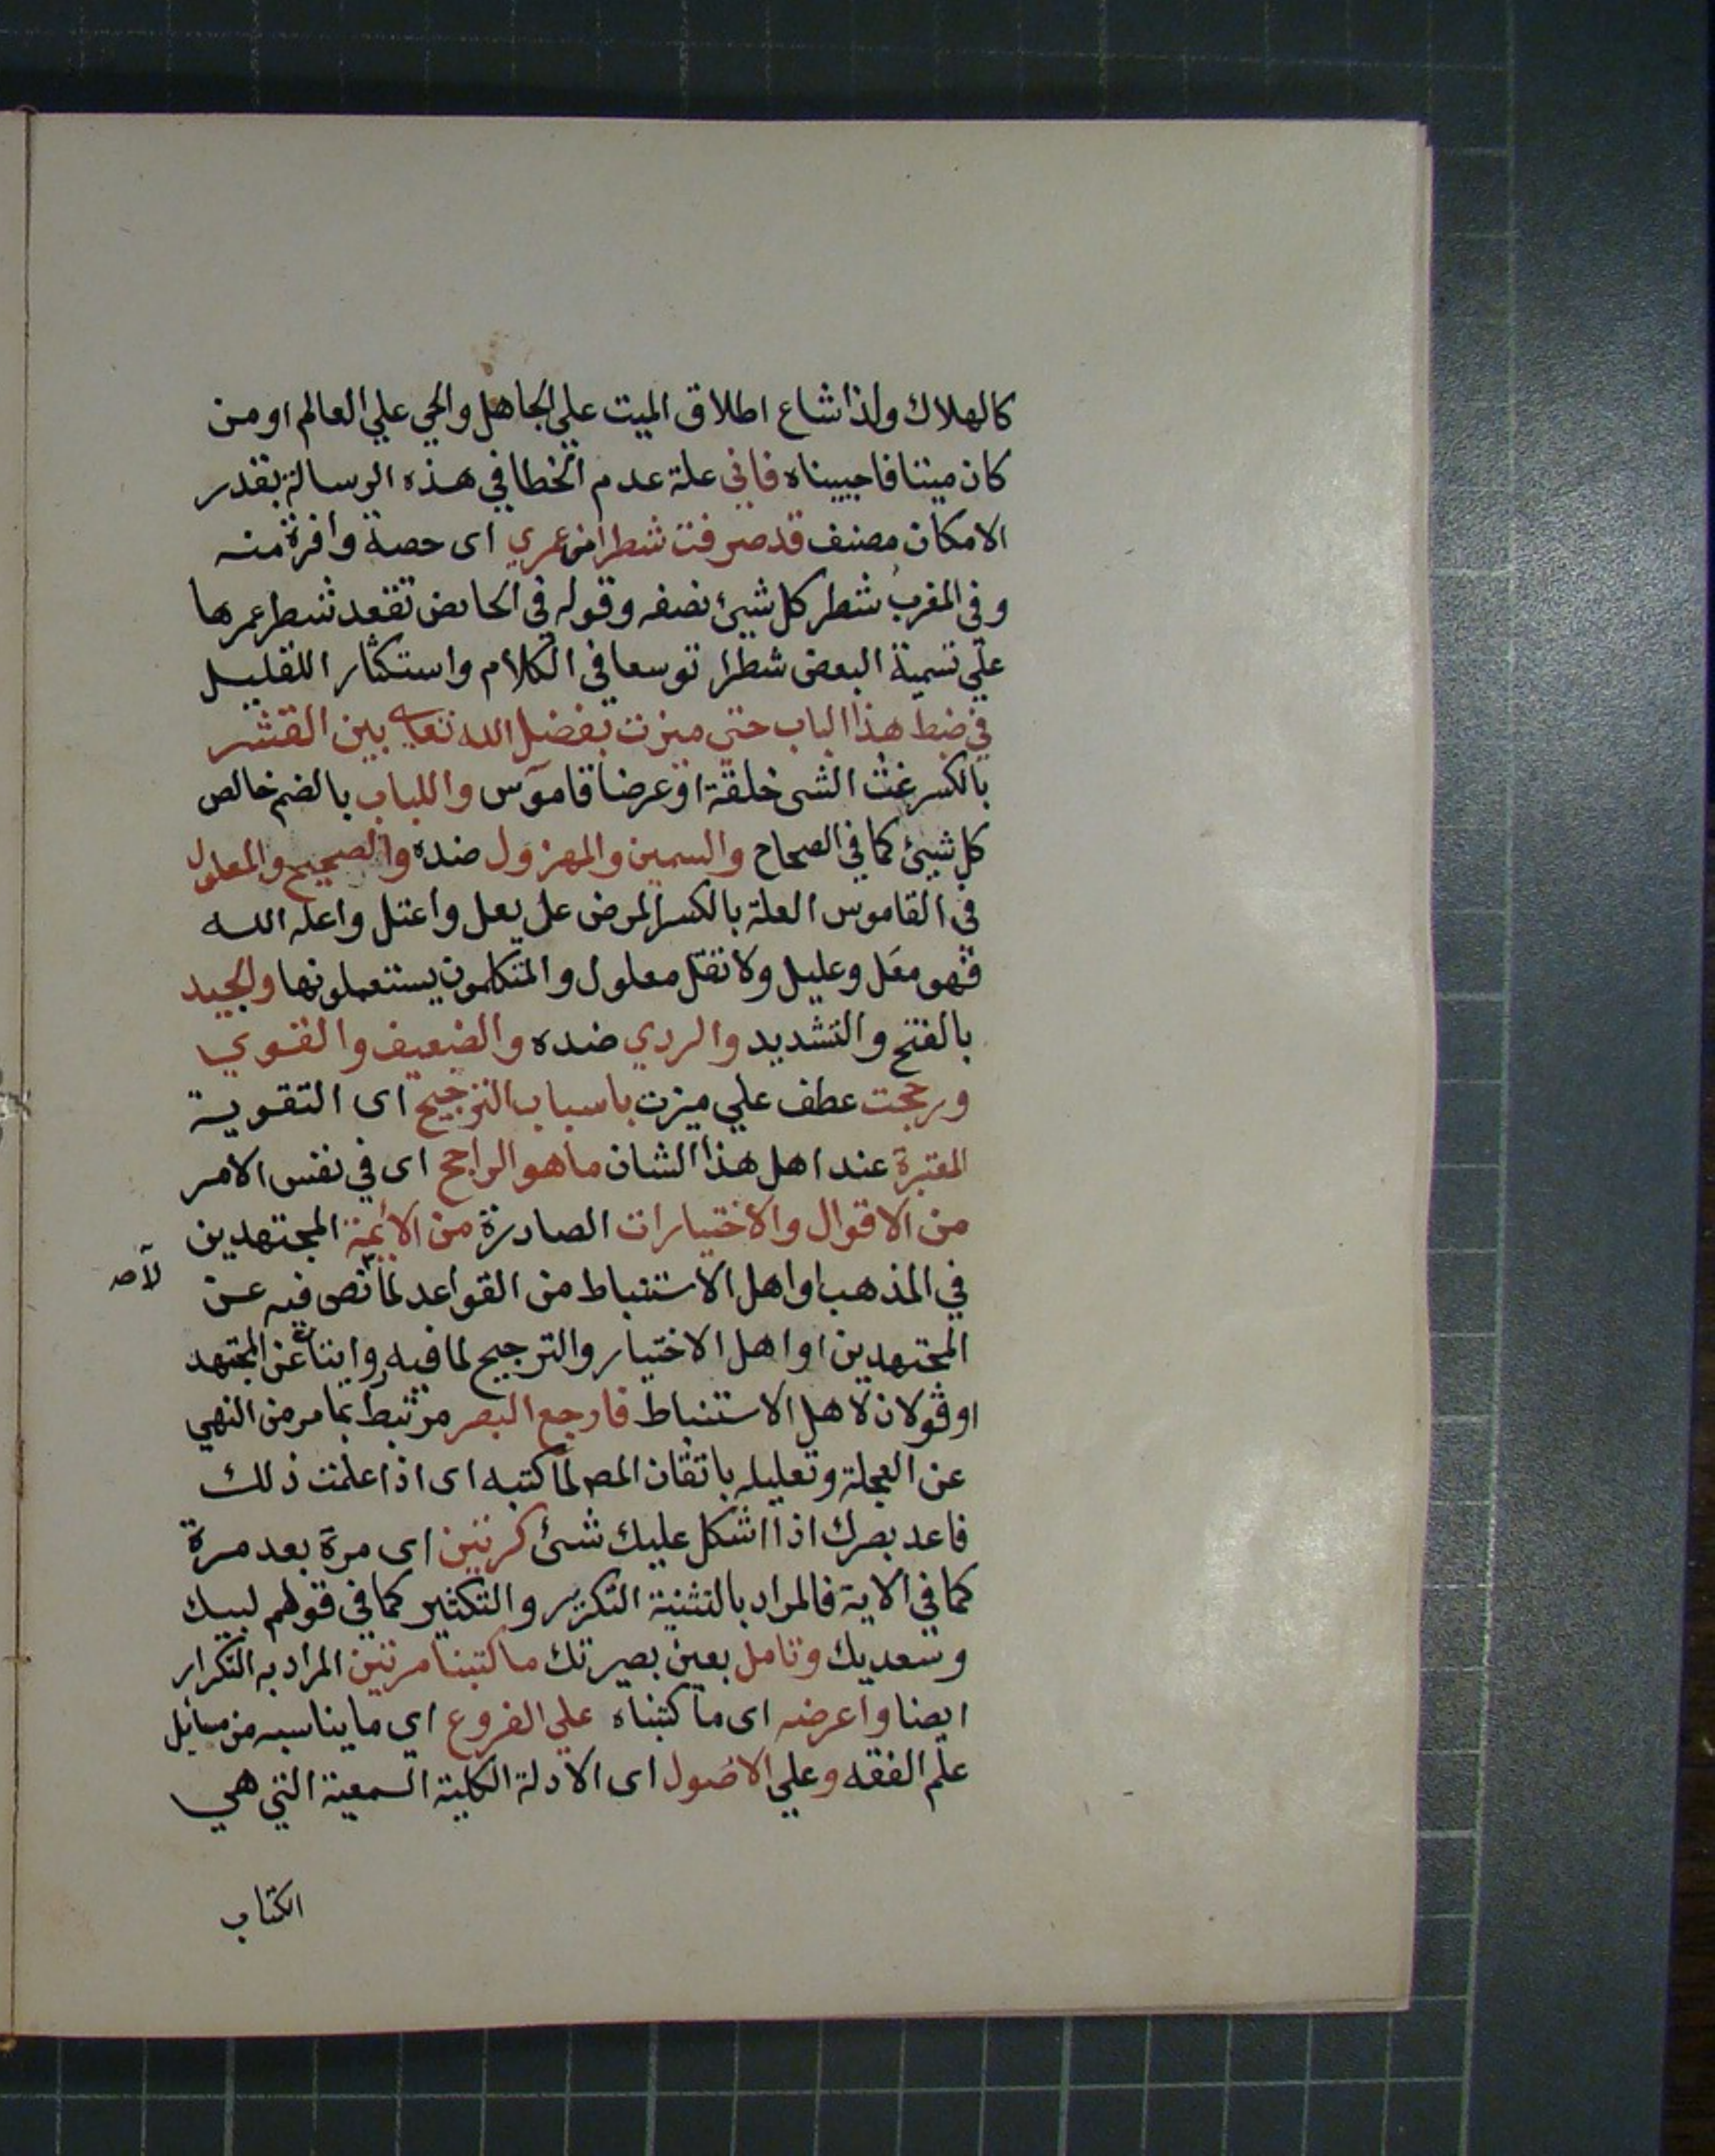 كالهلاك ولذا شاع اطلاق الميت علي الجاهل والحي علي العالم او من
كان ميتا فاحييناه فاني علة عدم الخطا في هذه الرسالة بقدر
الامكان مصنف قد صرفت شطرا من عمري اى حصة وافرة منه
وفي المغرب شطر كل شيئ نصفه وقوله في الحائض تقعد شطر عمرها
علي تسمية البعض شطرا توسعا في الكلام واستكثار اللقليل
في ضبط هذا الباب حتي ميزت بفضل الله تعالى بين القشر
بالكسر غث الشى خلقة او عرضا قاموس واللباب بالضم خالص
كل شيئ كما في الصحاح والسمين والمهزول ضده والصحيح والمعلول
في القاموس العلة بالكسر المرض عل يعل واعتل واعله الله
فهو معل وعليل ولا تقل معلول والمتكلمون يستعملونها والجيد
بالفتح والتشديد والردي ضده والضعيف والقوي
ورجحت عطف علي ميزت باسباب الترجيح اى التقوية
المعتبرة عند اهل هذا الشان ما هو الراجح اى في نفس الامر
من الاقوال والاختيارات الصادرة من الائمة المجتهدين
في المذهب او اهل الاستنباط من القواعد لما نص فيه عن
لا صه
المجتهدين او اهل الاختيار والترجيح لما فيه روايتان عن المجتهد
او قولان لاهل الاستنباط فارجع البصر مرتبط بما مر من النهي
عن العجلة وتعليله باتقان المصـ لما كتبه اى اذا علمت ذلك
فاعد بصرك اذا اشكل عليك شئ كرتين اى مرة بعد مرة
كما في الاية فالمراد بالتثنية التكرير والتكثير كما في قولهم لبيك
وسعديك وتامل بعين بصيرتك ما كتبنا مرتين المراد به التكرار
ايضا واعرضه اى ما كتبناه علي الفروع اي ما يناسبه من مسائل
علم الفقه وعلي الاصول اى الادلة الكلية السمعية التي هي
الكتاب